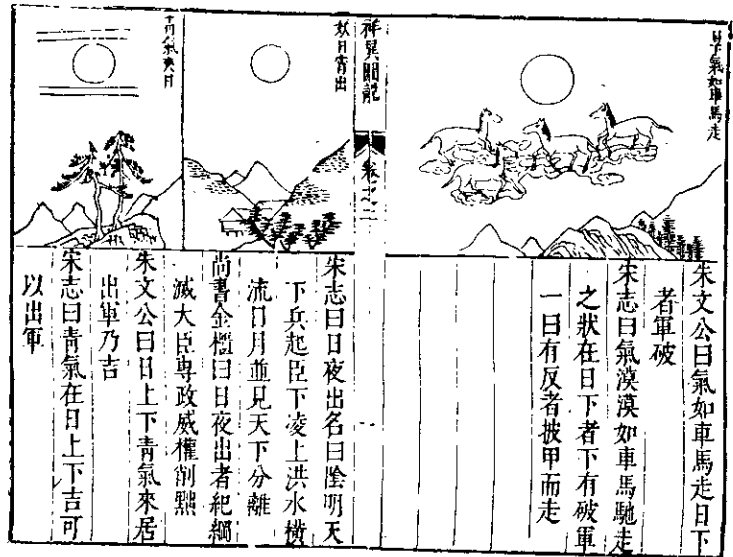 日下氣如車馬走
朱文公曰氣如車馬走日下
者軍破
宋志曰氣漠漠如車馬馳走
之狀在日下者下有破軍
一曰有反者披甲而走
祥異圖說
卷之二
妖日宵出
宋志曰日夜出名曰陰明天
下兵起臣下凌上洪水橫
流日月並見天下分離
尚書金櫃曰日夜出者紀綱
滅大臣專政威權削黜
青氣夾日
朱文公曰日上下青氣來居
出軍乃吉
宋志曰青氣在日上下吉可
以出軍